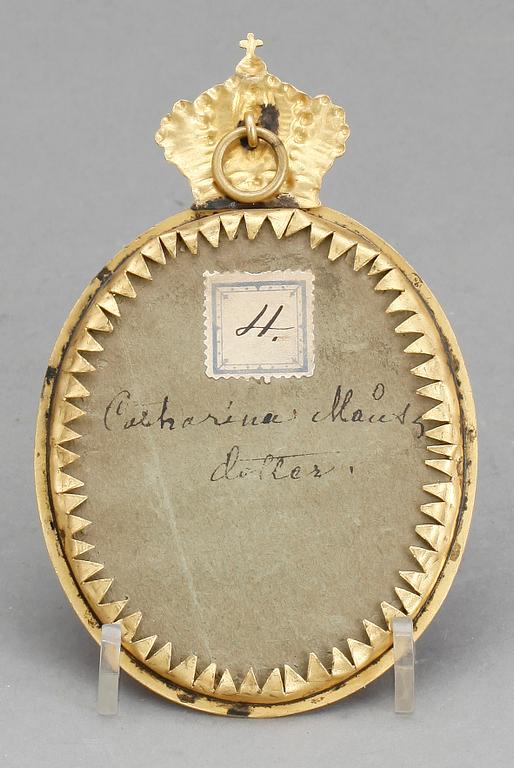 4.
Catharina Måns
dotter.